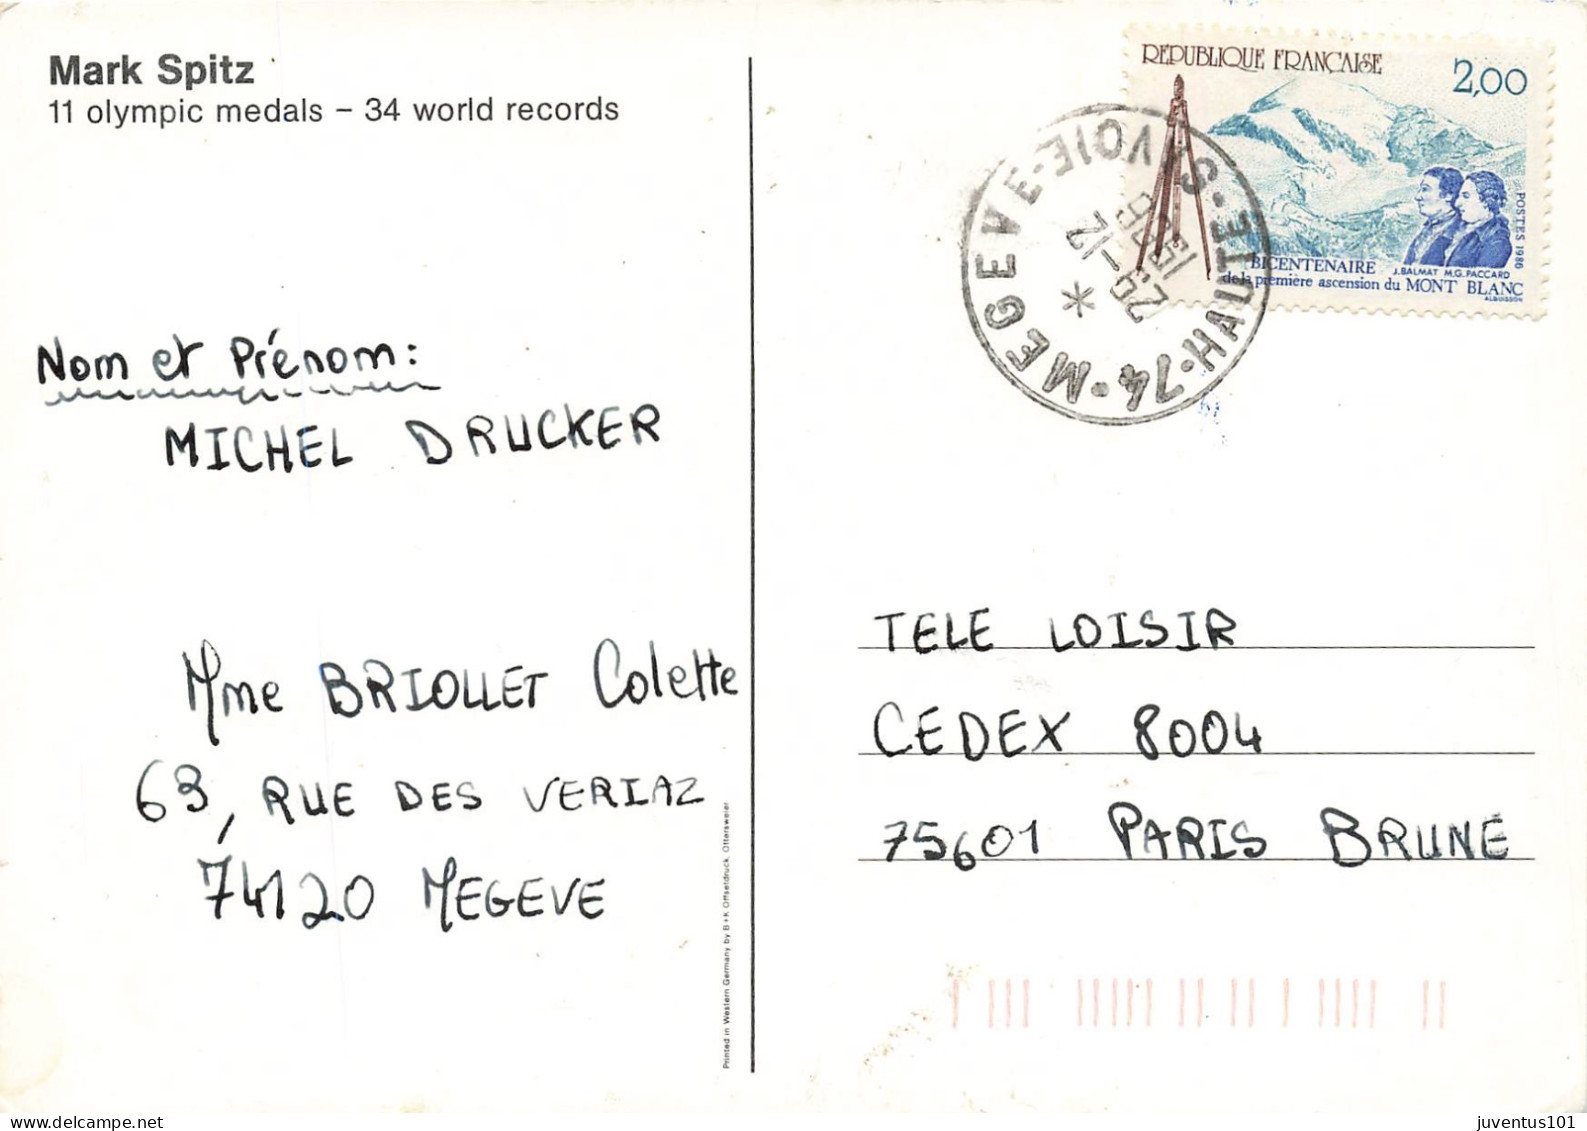 Mark Spitz
11 olympic medals – 34 world records
Nom et Prénom:
MICHEL DRUCKER
Mme BRIOLLET Colette
63, RUE DES VERIAZ
74120 MEGEVE
Printed in Western Germany by B+K Offsetdruck, Ottersweier
REPUBLIQUE FRANÇAISE
2,00
POSTES 1986
J.BALMAT M.G.PACCARD
BICENTENAIRE
de la première ascension du MONT BLANC
ALBUISSON
74 · HAUTE · SAVOIE · MEGEVE
29-12
TELE LOISIR
CEDEX 8004
75601 PARIS BRUNE
juventus101